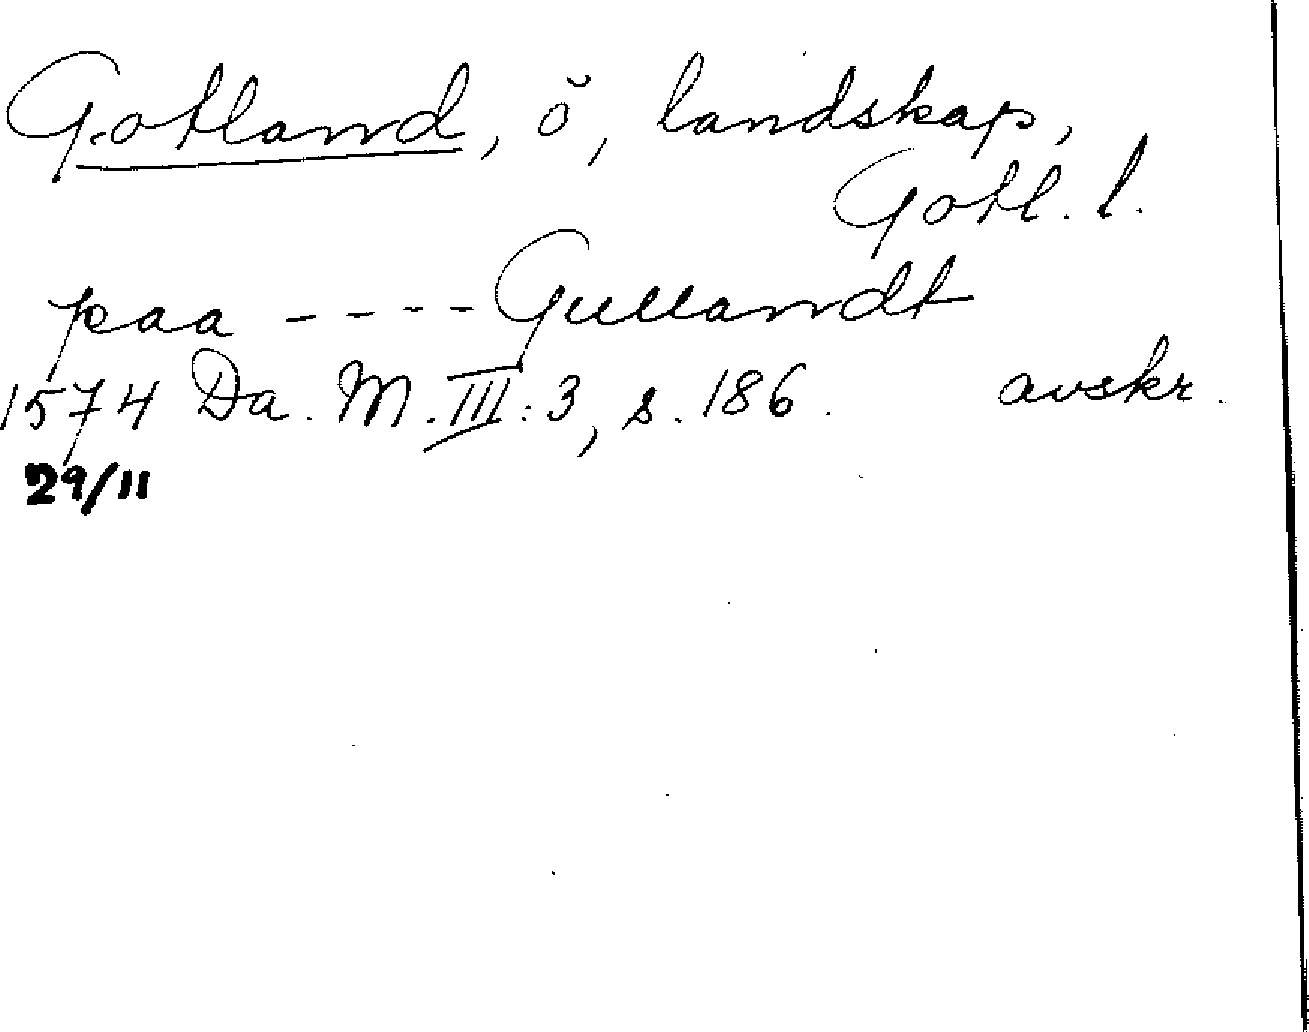 Gotland, ö, landskap,
Gotl. l.
paa ---- Gullandt
1574 Da. M. III: 3, s. 186. avskr.
29/11